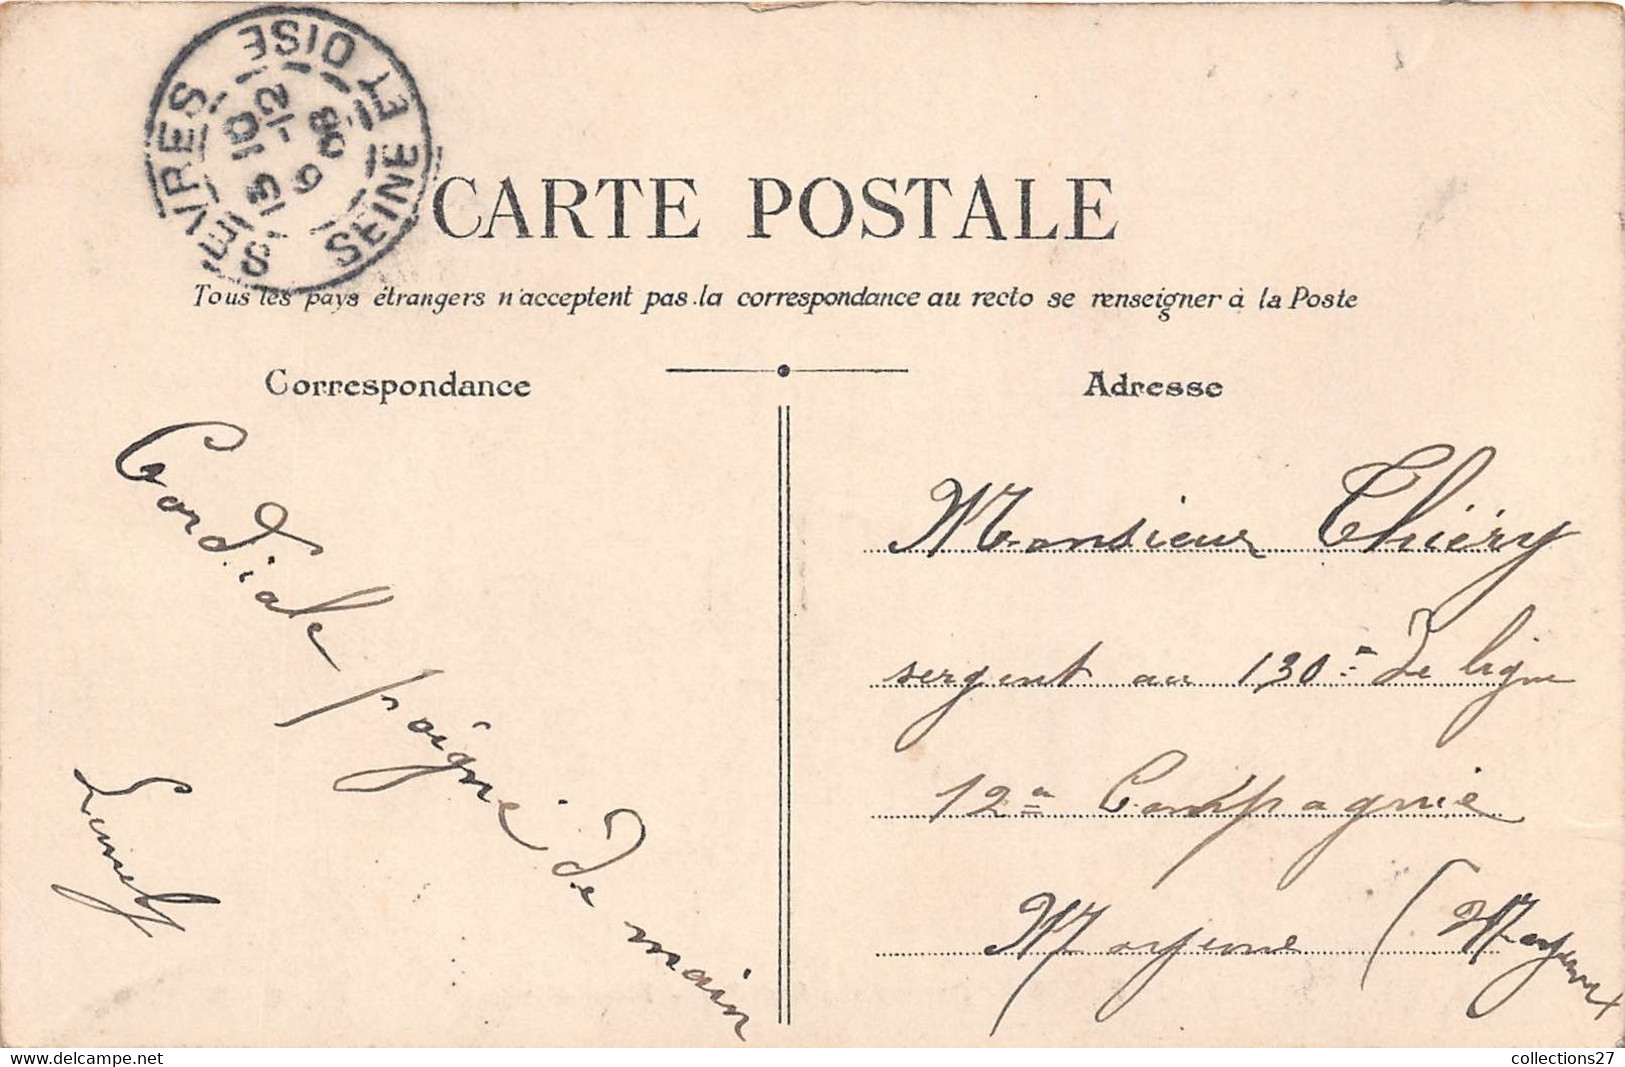 SEVRES
SEINE ET OISE
15 10
6 -12
08
CARTE POSTALE
Tous les pays étrangers n'acceptent pas la correspondance au recto se renseigner à la Poste
Correspondance
Adresse
Cordiale poignée de main
Monsieur Thiéry
sergent au 130e de ligne
12e Compagnie
Mayenne (Mayenne)
collections27